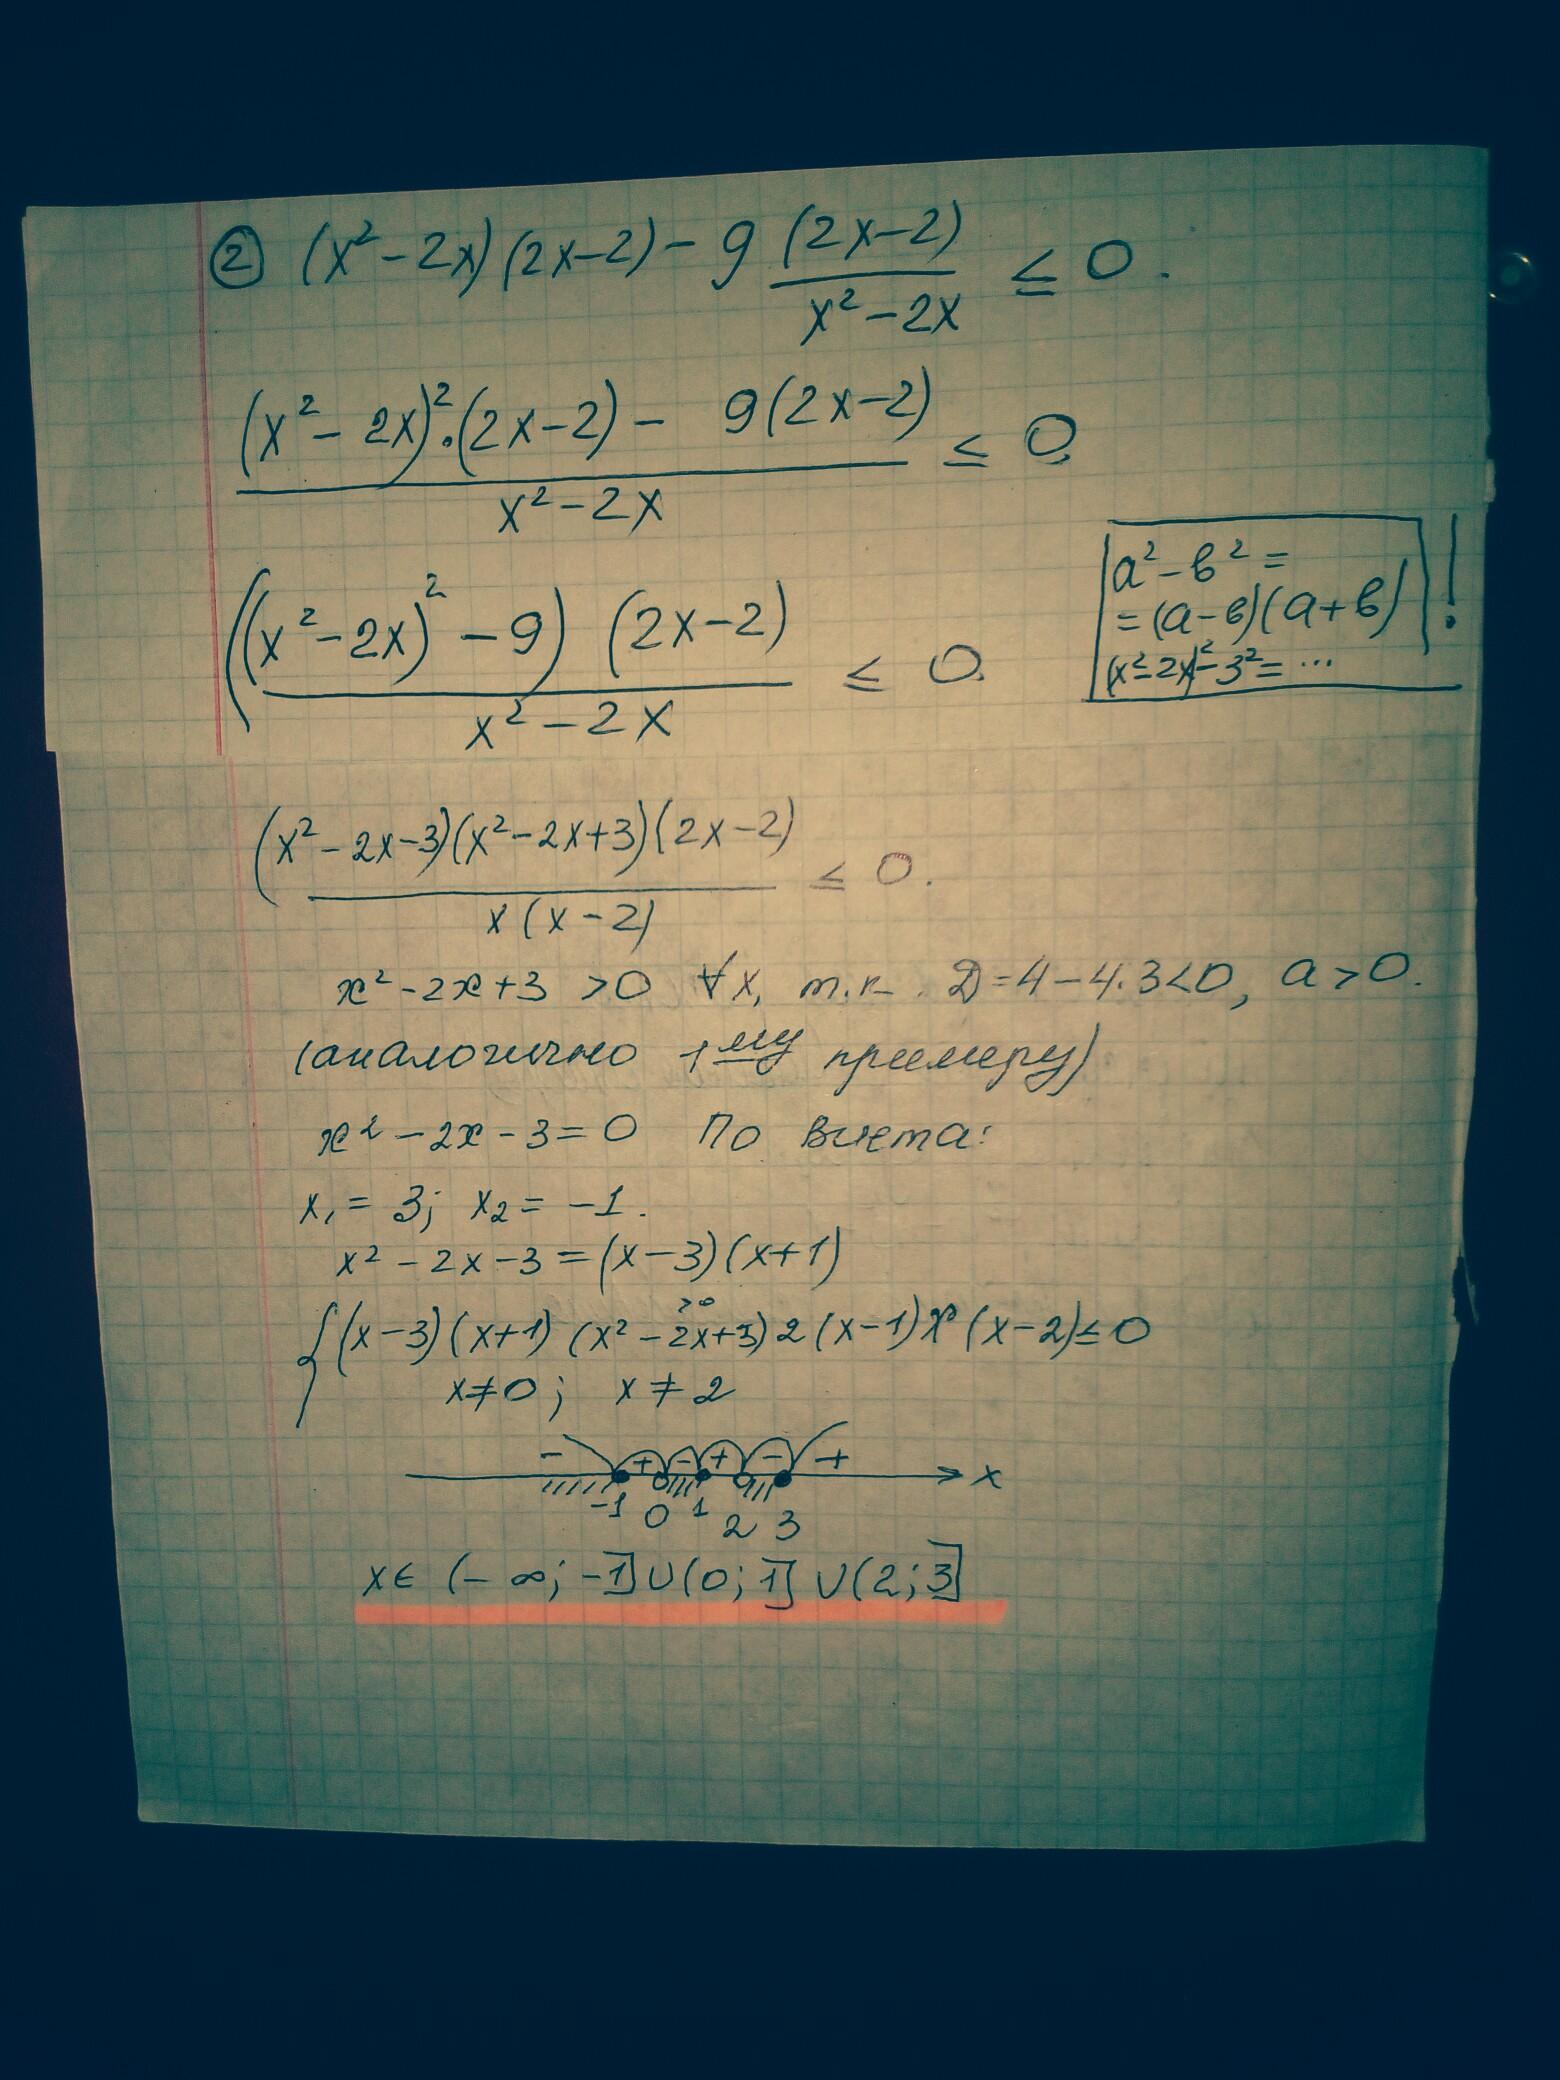 ② (x² - 2x)(2x-2) - 9 (2x-2)/(x² - 2x) ≤ 0.
((x² - 2x)²·(2x-2) - 9(2x-2))/(x² - 2x) ≤ 0
((x² - 2x)² - 9)(2x-2)/(x² - 2x) ≤ 0.
a² - в² =
= (a-в)(a+в) !
(x²-2x)²-3²= ...
(x² - 2x-3)(x²-2x+3)(2x-2)/(x(x-2)) ≤ 0.
x² - 2x + 3 > 0 ∀x, т.к. D=4-4·3<0, a>0.
(аналогично 1му примеру)
x² - 2x - 3 = 0 По Виета:
x₁ = 3; x₂ = -1.
x² - 2x - 3 = (x-3)(x+1)
>0
{(x-3)(x+1)(x² - 2x+3)2(x-1)x(x-2)≤0
x≠0; x≠2
- + - + - + x
-1 0 1 2 3
x∈ (-∞; -1]∪(0; 1]∪(2; 3]